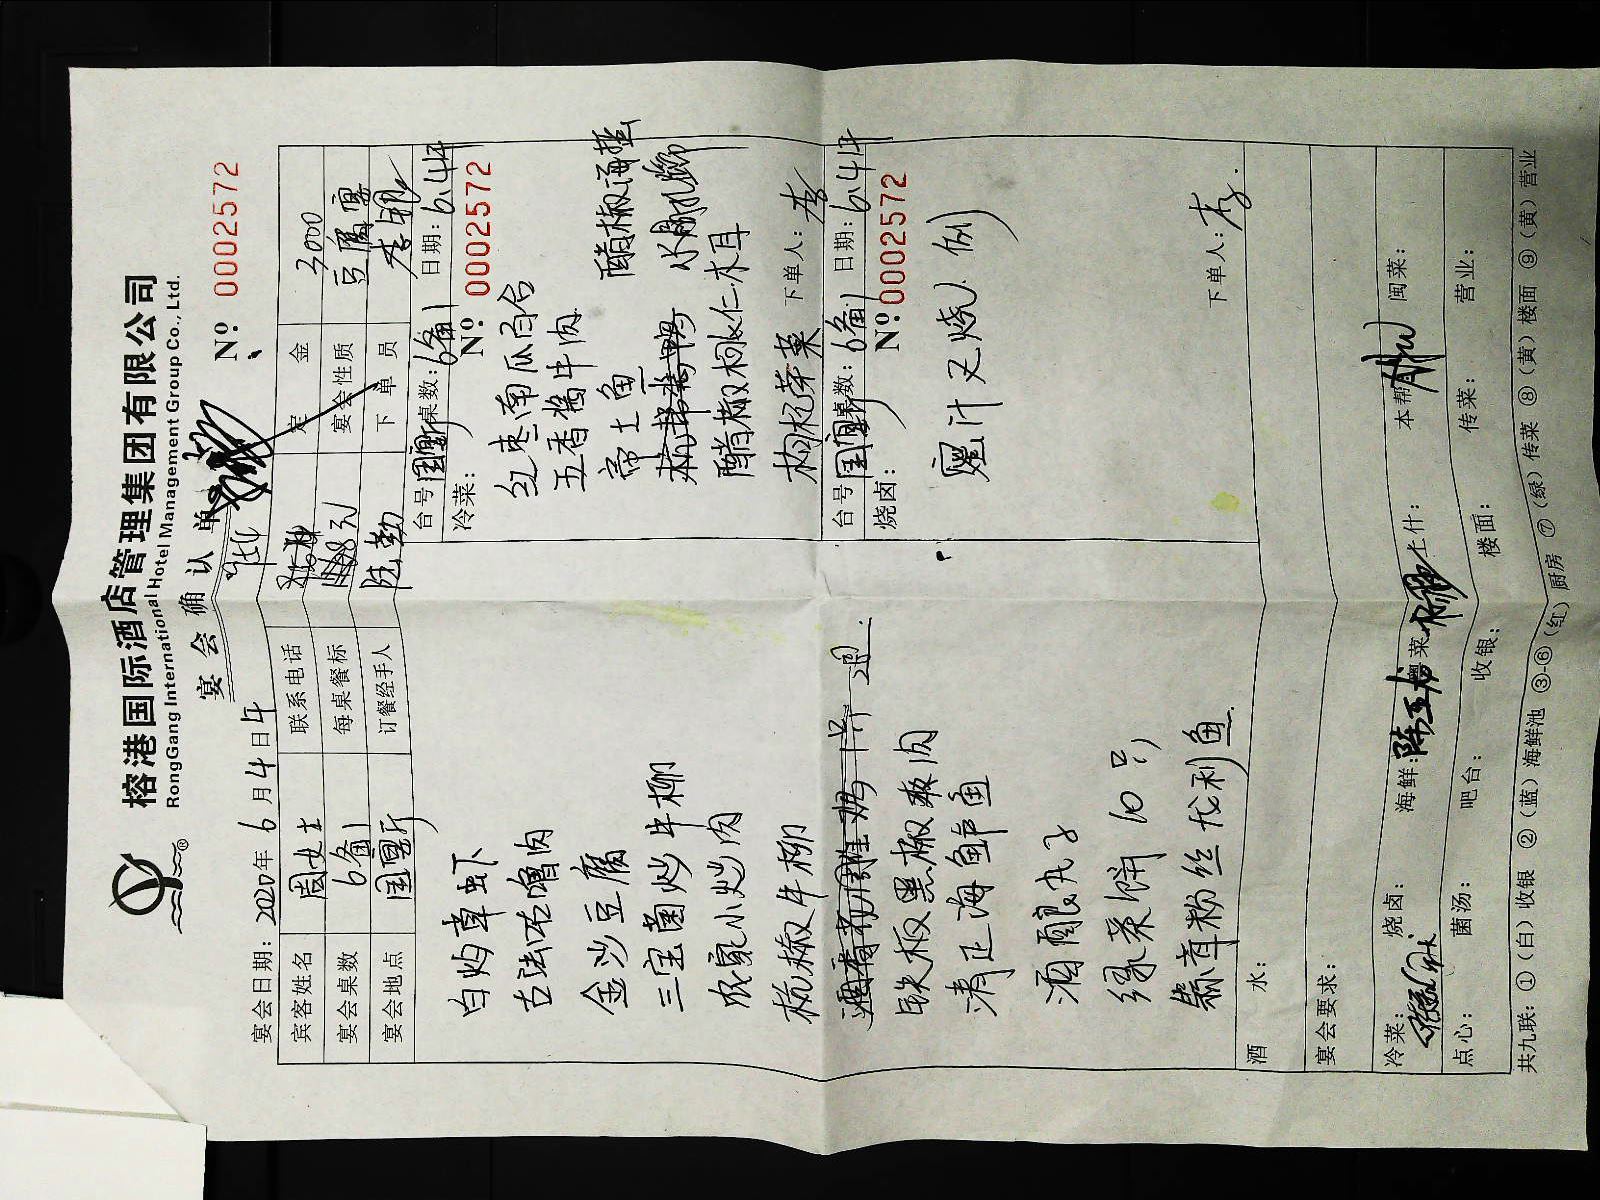 榕港国际酒店管理集团有限公司
RongGang International Hotel Management Group Co., Ltd.
宴会确认单
№ 0002572
宴会日期：2020年6月4日午
宾客姓名 周女士 联系电话 定金 3000
宴会桌数 6备1 每桌餐标 宴会性质
宴会地点 国宴厅 订餐经手人 陆勤 下单员
白灼草虾
古法咕噜肉
金沙豆腐
三宝菌炒牛柳
农家小炒肉
杭椒牛柳
铁板黑椒爽肉
清正海鲈鱼
酒酿丸子
绿茶饼 10只
蒜茸粉丝龙利鱼
台号 国宴厅 桌数：6备1 日期：6.4午
冷菜：
№ 0002572
红枣南瓜百合
五香酱牛肉
醋椒海蜇
醋椒桃仁木耳
枸杞芽菜
下单人：李
台号 国宴厅 桌数：6备1 日期：6.4午
烧卤：
№ 0002572
蜜汁叉烧（例）
下单人：李.
酒水：
宴会要求：
冷菜： 烧卤： 海鲜： 粤菜 上什： 本帮 闽菜：
点心： 菌汤： 吧台： 收银： 楼面： 传菜： 营业：
共九联：①（白）收银 ②（蓝）海鲜池 ③-⑥（红）厨房 ⑦（绿）传菜 ⑧（黄）楼面 ⑨（黄）营业